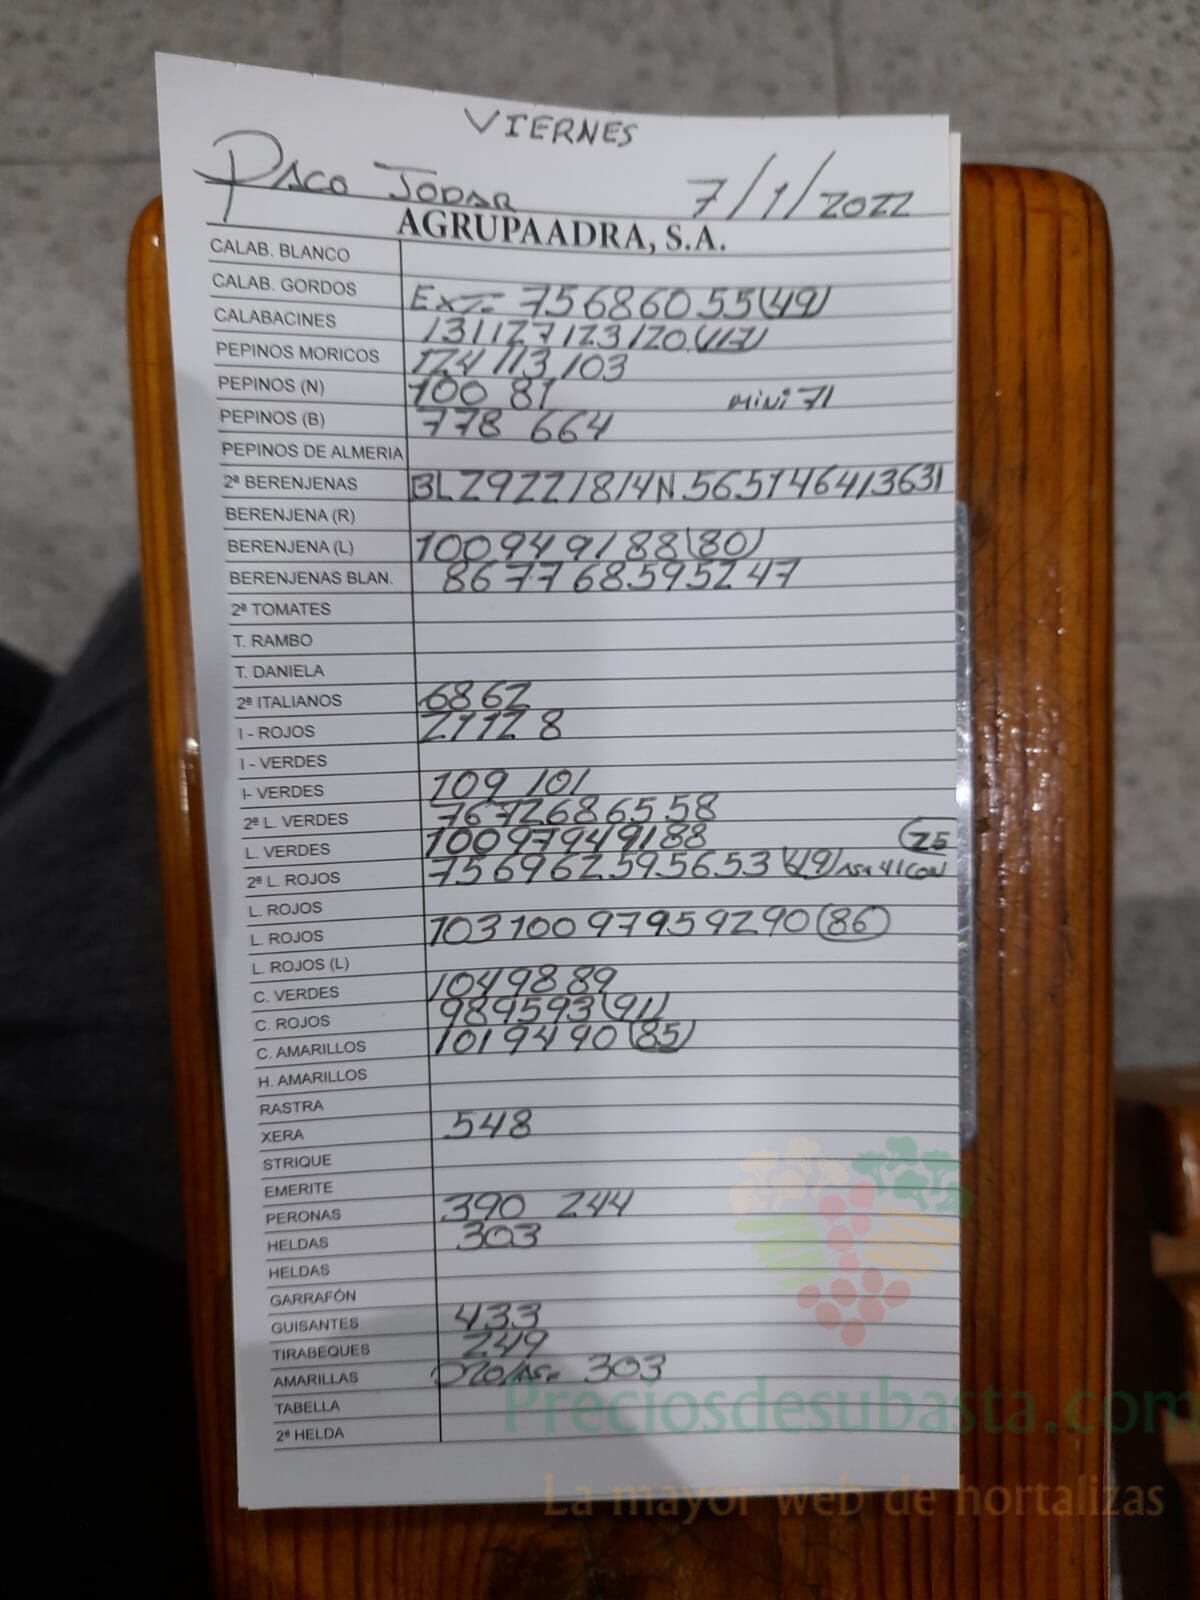 VIERNES
PACO JODAR 7/1/2022
AGRUPAADRA, S.A.
CALAB. BLANCO
CALAB. GORDOS Ext= 75 68 60 55 (49)
CALABACINES 131 127 123 120 (117)
PEPINOS MORICOS 124 113 103
PEPINOS (N) 100 81 mini 71
PEPINOS (B) 778 664
PEPINOS DE ALMERIA
2ª BERENJENAS BL 29 22 18 14 N. 56 51 46 41 36 31
BERENJENA (R)
BERENJENA (L) 100 94 91 88 (80)
BERENJENAS BLAN. 86 77 68 59 52 47
2ª TOMATES
T. RAMBO
T. DANIELA
2ª ITALIANOS 68 62
I - ROJOS 21 12 8
I - VERDES
I- VERDES 109 101
2ª L. VERDES 76 72 68 65 58
L. VERDES 100 97 94 91 88 (75
2ª L. ROJOS 75 69 62 59 56 53 (49) Asa 41 CON
L. ROJOS
L. ROJOS 103 100 97 95 92 90 (86)
L. ROJOS (L)
C. VERDES 104 98 89
C. ROJOS 98 95 93 (91)
C. AMARILLOS 101 94 90 (85)
H. AMARILLOS
RASTRA
XERA 548
STRIQUE
EMERITE
PERONAS 390 244
HELDAS 303
HELDAS
GARRAFÓN
GUISANTES 433
TIRABEQUES 249
AMARILLAS 303
TABELLA
2ª HELDA
Preciosdesubasta.com
La mayor web de hortalizas